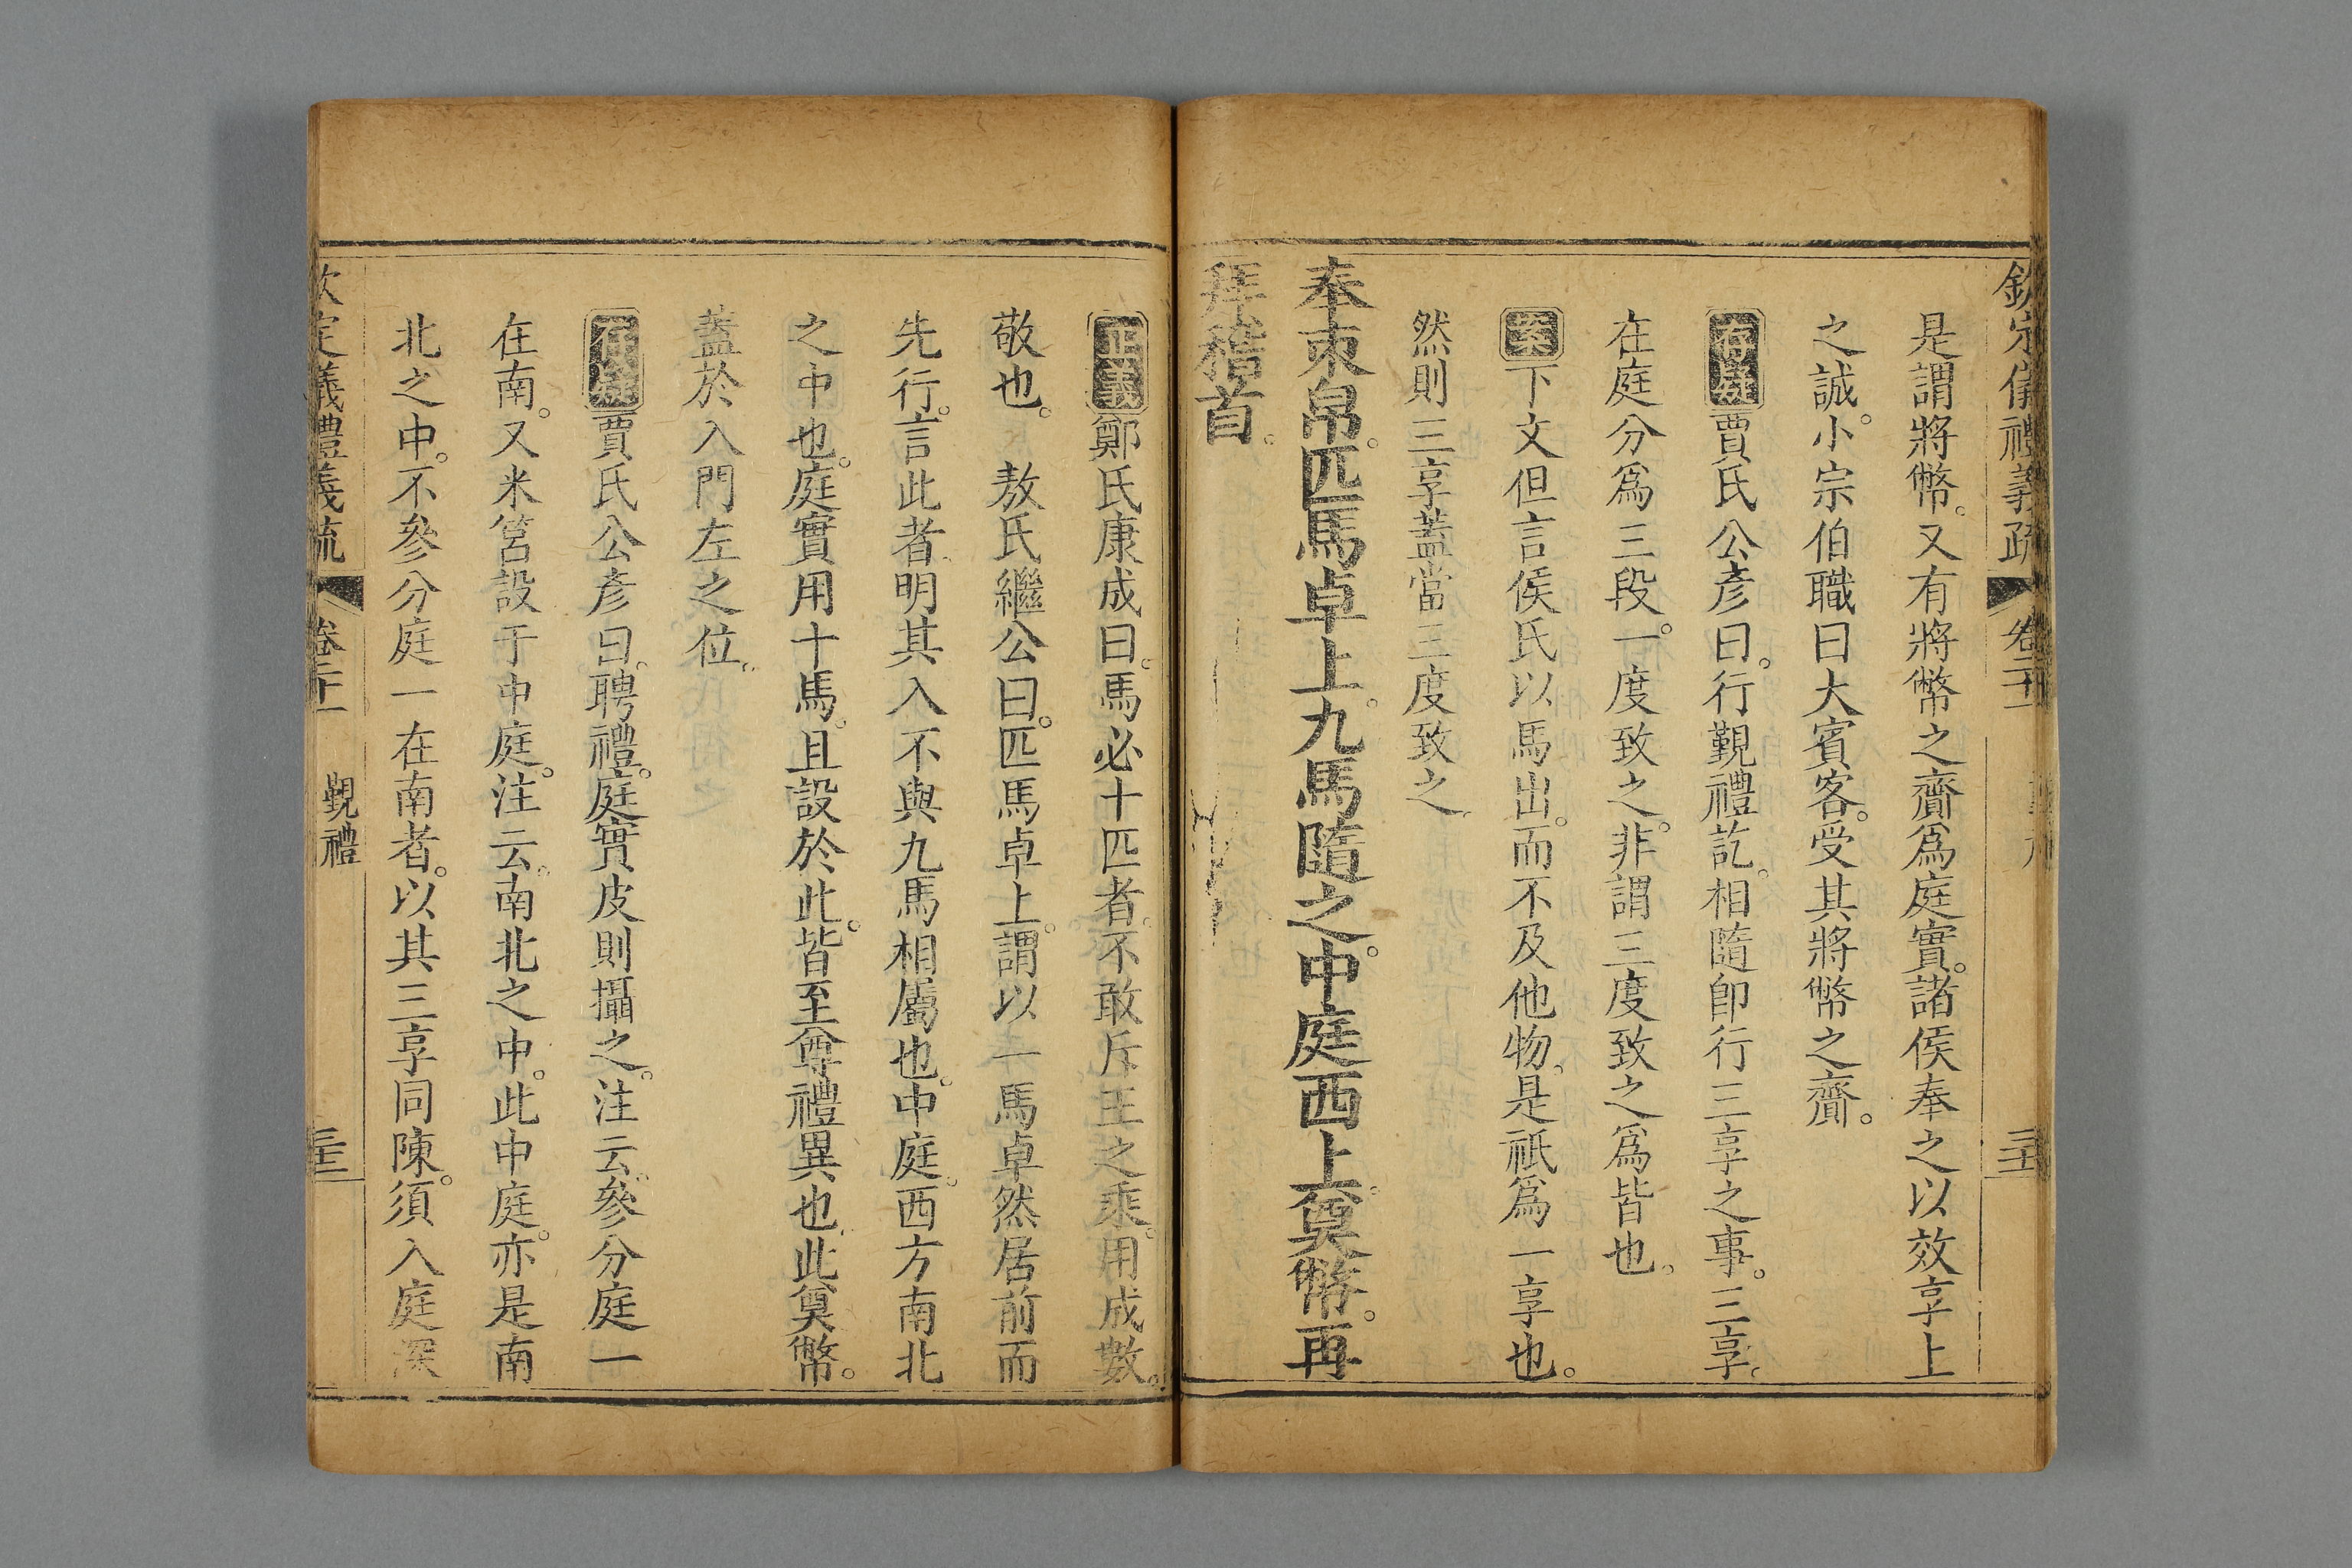 欽定儀禮義疏 卷二十一 覲禮 三十二
是謂將幣。又有將幣之齎爲庭實。諸侯奉之以效享上
之誠。小宗伯職曰大賓客。受其將幣之齎。
存疑賈氏公彥曰。行覲禮訖。相隨卽行三享之事。三享。
在庭分爲三段。一度致之。非謂三度致之爲皆也。
案下文但言侯氏以馬出。而不及他物。是祇爲一享也。
然則三享蓋當三度致之。
奉束帛。匹馬卓上。九馬隨之。中庭西上。奠幣。再
拜稽首。
正義鄭氏康成曰。馬必十匹者。不敢斥王之乘。用成數。
敬也。 敖氏繼公曰。匹馬卓上。謂以一馬卓然居前而
先行。言此者。明其入不與九馬相屬也。中庭。西方南北
之中也。庭實用十馬。且設於此。皆至尊禮異也。此奠幣。
蓋於入門左之位。
存疑賈氏公彥曰。聘禮。庭實皮則攝之。注云。參分庭一
在南。又米筥設于中庭。注云。南北之中。此中庭。亦是南
北之中。不參分庭一在南者。以其三享同陳。須入庭深
欽定儀禮義疏 卷二十一 覲禮 三十三